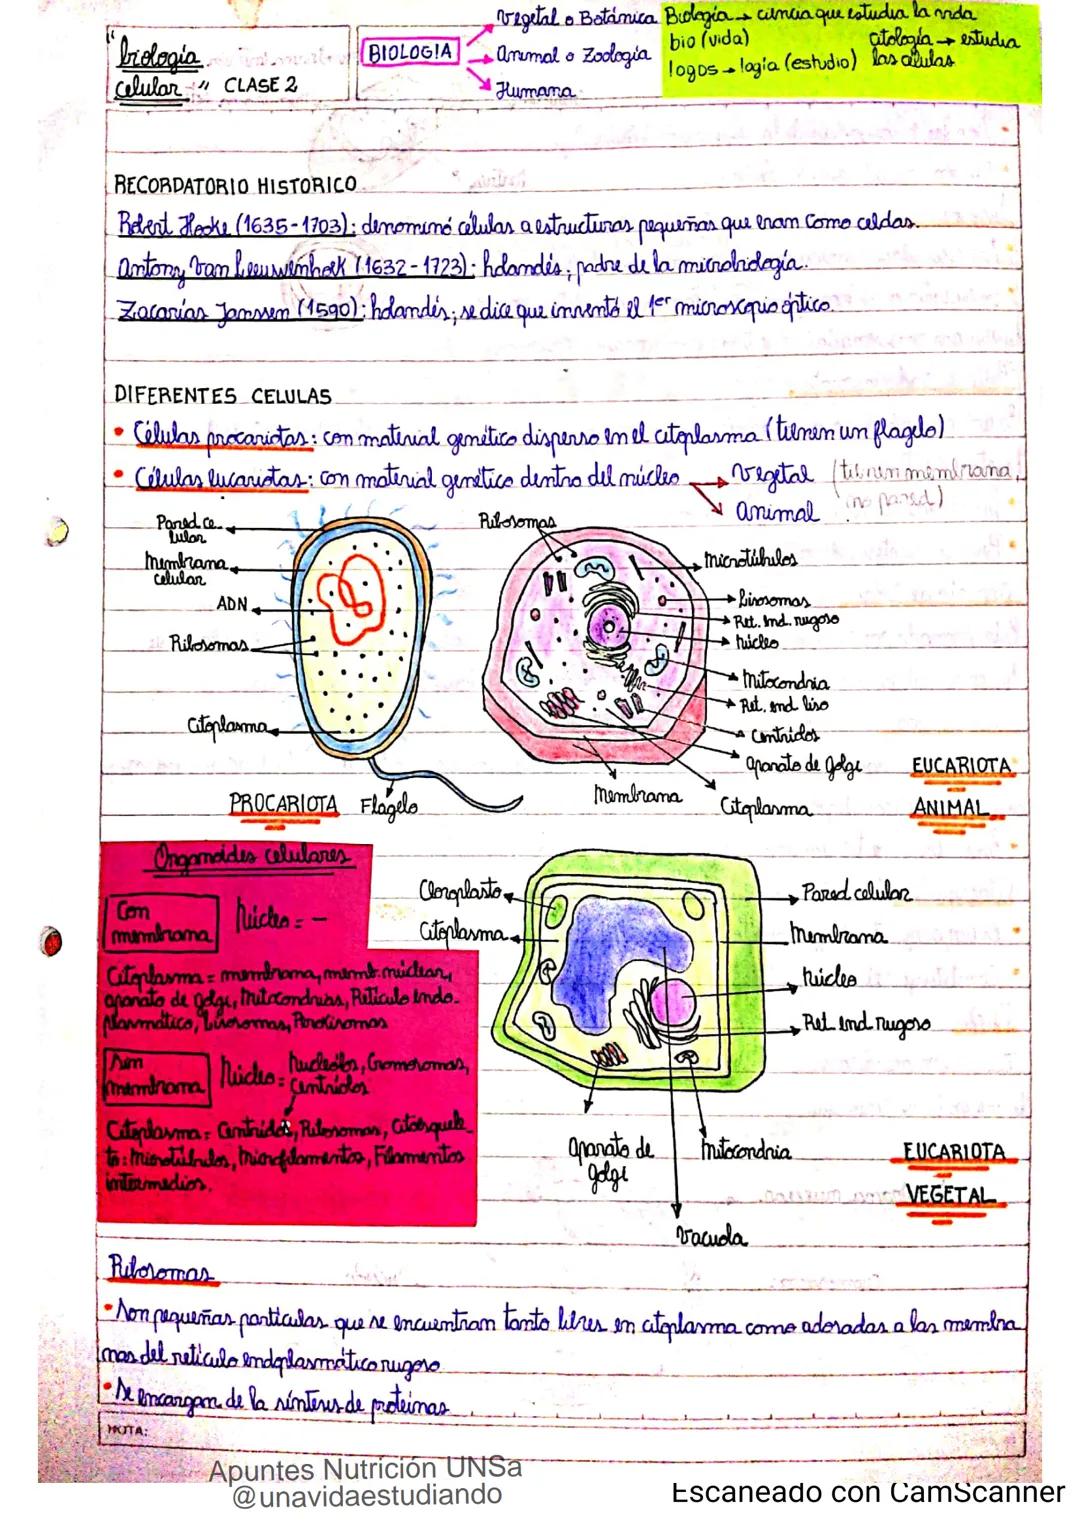 "biología
celular" CLASE 2
BIOLOGIA
Vegetal o Botánica
Animal o Zoología
Humana
Biología → ciencia que estudia la vida
bio (vida)
logos → logia (estudio)
citología → estudia
las células
RECORDATORIO HISTORICO
Robert Hooke (1635-1703): denominó células a estructuras pequeñas que eran como celdas.
Antony Van Leeuwenhoek (1632-1723): holandés; padre de la microbiología.
Zacarías Janssen (1590): holandés; se dice que inventó el 1er microscopio óptico.
DIFERENTES CELULAS
• Células procariotas: con material genético disperso en el citoplasma (tienen un flagelo)
• Células eucariotas: con material genético dentro del núcleo → Vegetal (tienen membrana,
Animal (no pared)
Pared ce-
lular
Membrana
celular
ADN
Ribosomas
Citoplasma
PROCARIOTA
Flagelo
Ribosomas
Microtúbulos
Lisosomas
Ret. End. rugoso
Núcleo
Mitocondria
Ret. end liso
Centriolos
Aparato de golgi
Membrana
Citoplasma
EUCARIOTA
ANIMAL
Organoides celulares
Con
membrana
Núcleo = -
Citoplasma = membrana, memb. nuclear,
aparato de golgi, Mitocondrias, Retículo endo-
plasmático, Lisosomas, Peroxisomas
Sin
membrana
Núcleo = Nucleolos, Cromosomas,
Centriolos
Citoplasma = Centriolos, Ribosomas, Citoesquele-
to: Microtúbulos, Microfilamentos, Filamentos
intermedios.
Cloroplasto
Citoplasma
Pared celular
Membrana
Núcleo
Ret end rugoso
Aparato de
golgi
Mitocondria
Vacuola
EUCARIOTA
VEGETAL
Ribosomas
• Son pequeñas partículas que se encuentran tanto libres en citoplasma como adosadas a las membra
nas del retículo endoplasmático rugoso
• Se encargan de la síntesis de proteínas
NOTA:
Apuntes Nutrición UNSa
@unavidaestudiando
Escaneado con CamScanner